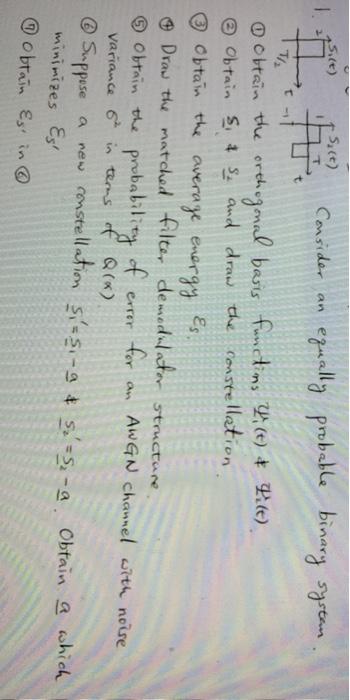 1.
2 S₁(t)
T/2 t
1 S₂(t)
-1 T t
Consider an equally probable binary system.
① Obtain the orthogonal basis functions Ψ₁(t) & Ψ₂(t)
② Obtain S₁ & S₂ and draw the constellation
③ Obtain the average energy Es.
④ Draw the matched filter demodulator structure.
⑤ Obtain the probability of error for an AWGN channel with noise
variance σ² in terms of Q(x)
⑥ Suppose a new constellation S₁' = S₁ - a & S₂' = S₂ - a. Obtain a which
minimizes Es'
⑦ Obtain Es' in ⑥